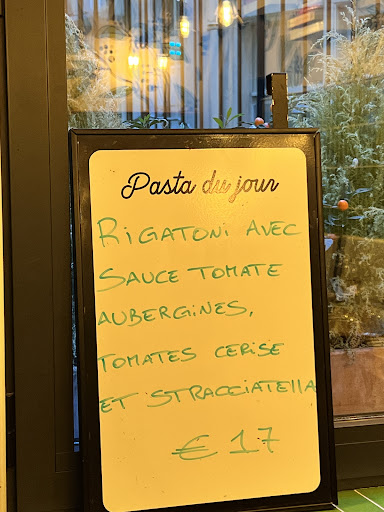 Pasta du jour
RIGATONI AVEC
SAUCE TOMATE
AUBERGINES,
TOMATES CERISE
ET STRACCIATELLA
€ 17